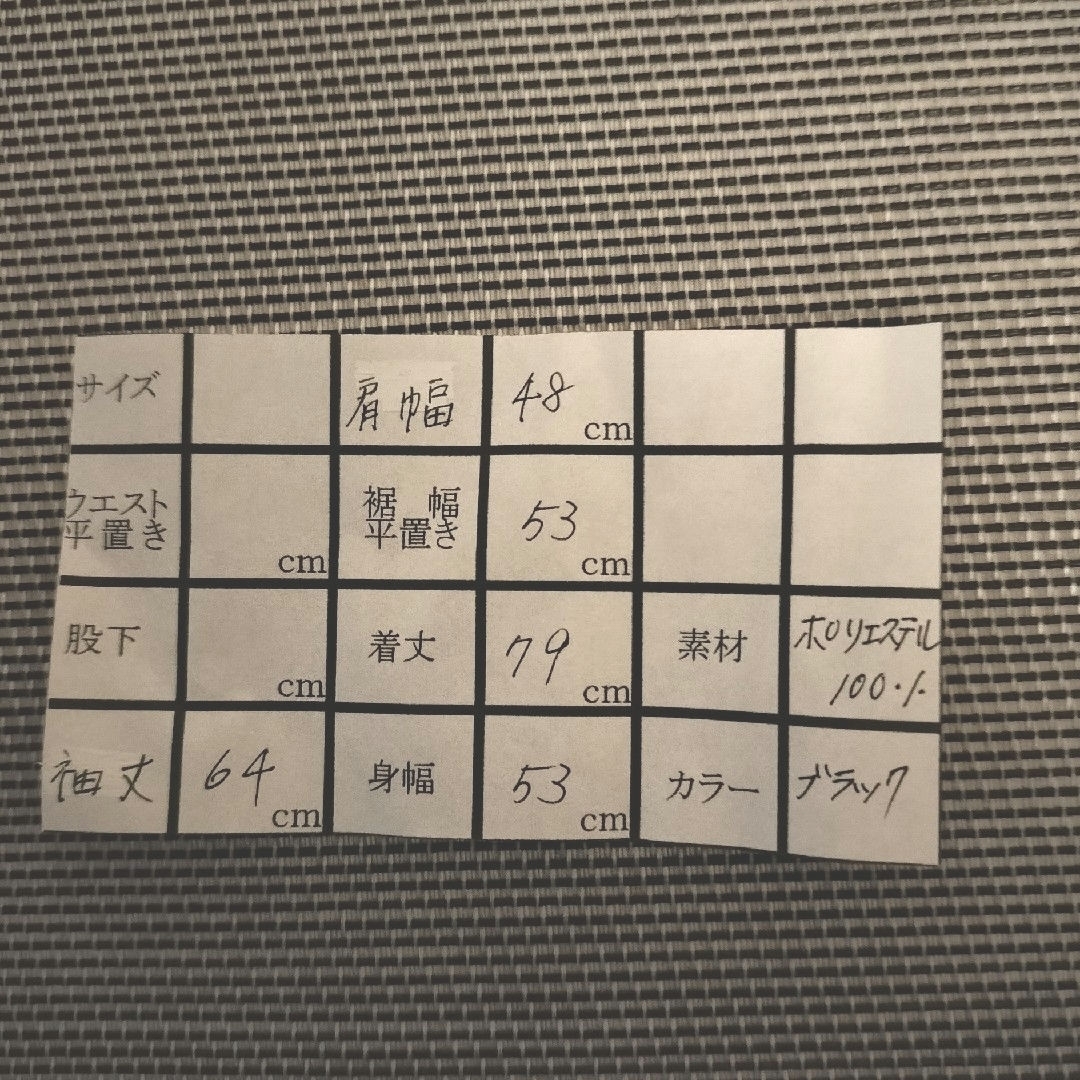 サイズ
肩幅 48 cm
ウエスト
平置き cm
裾 幅
平置き 53 cm
股下 cm
着丈 79 cm
素材 ポリエステル
100%
袖丈 64 cm
身幅 53 cm
カラー ブラック